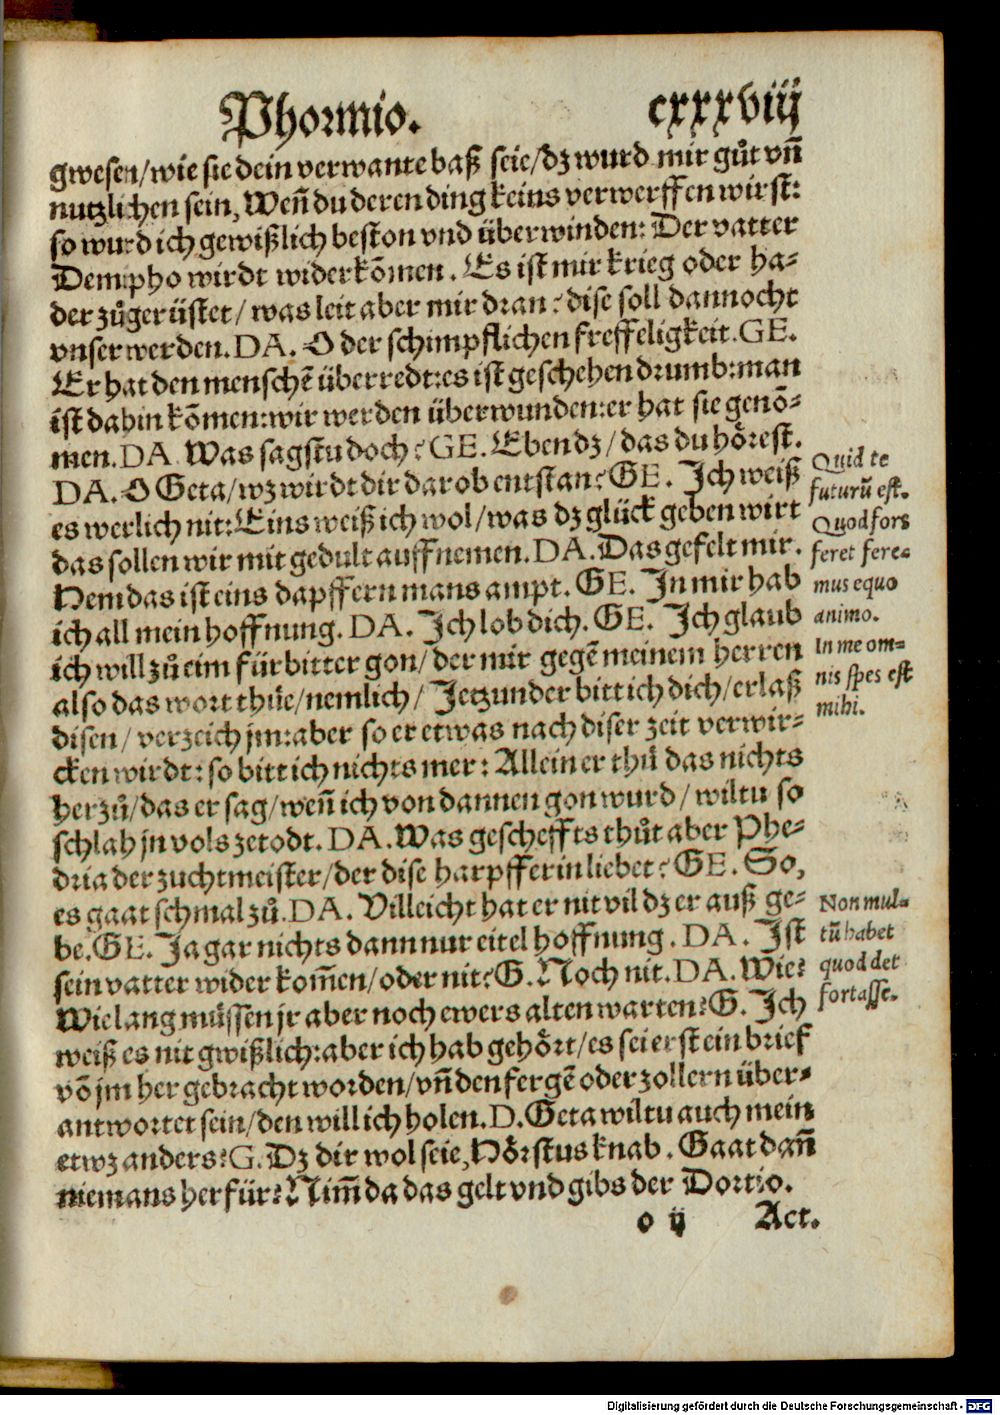 Phormio. cxxxviij
gwesen/wie sie dein verwante baß seie/dz wurd mir gůt vñ
nutzlichen sein, Weñ du deren ding keins verwerffen wirst:
so wurd ich gewißlich beston vnd überwinden: Der vatter
Demipho wirdt widerkõmen. Es ist mir krieg oder ha-
der zůgerüstet/ was leit aber mir dran? dise soll dannocht
vnser werden. DA. O der schimpflichen freffeligkeit. GE.
Er hat den menschẽ überredt: es ist geschehen drumb: man
ist dahin kõmen: wir werden überwunden: er hat sie genõ-
men. DA. Was sagstu doch? GE. Eben dz/ das du hörest.
DA. O Geta/wz wirdt dir darob entstan? GE. Ich weiß
es werlich nit: Eins weiß ich wol/was dz glück geben wirt
das sollen wir mit gedult auffnemen. DA. Das gefelt mir.
Hem das ist eins dapffern mans ampt. GE. In mir hab
ich all mein hoffnung. DA. Ich lob dich. GE. Ich glaub
ich will zů eim fürbitter gon/ der mir gegẽ meinem herren
also das wort thüe/nemlich/ Jetzunder bitt ich dich/erlaß
disen/ verzeich jm: aber so er etwas nach diser zeit verwir-
cken wirdt: so bitt ich nichts mer: Allein er thů das nichts
herzů/das er sag/weñ ich von dannen gon wurd/ wiltu so
schlah jn vols ze todt. DA. Was gescheffts thůt aber Phe-
dria der zuchtmeister/der dise harpfferin liebet? GE. So,
es gaat schmal zů. DA. Villeicht hat er nit vil dz er auß ge-
be. GE. Ja gar nichts dann nur eitel hoffnung. DA. Ist
sein vatter wider kom̃en/oder nit? G. Noch nit. DA. Wie?
Wie lang müssen jr aber noch ewers alten warten? G. Ich
weiß es nit gwißlich: aber ich hab gehört/es sei erst ein brief
võ jm her gebracht worden/vñ den fergẽ oder zollern über-
antwortet sein/den will ich holen. D. Geta wiltu auch mein
etwz anders? G. Dz dir wol seie, Hörstus knab. Gaat dañ
niemans herfür? Nim̃ da das gelt vnd gibs der Dortio.
o ij Act.
Quid te
futurũ est.
Quod fors
feret fere-
mus equo
animo.
In me om-
nis spes est
mihi.
Non mul-
tũ habet
quod det
fortasse.
Digitalisierung gefördert durch die Deutsche Forschungsgemeinschaft - DFG